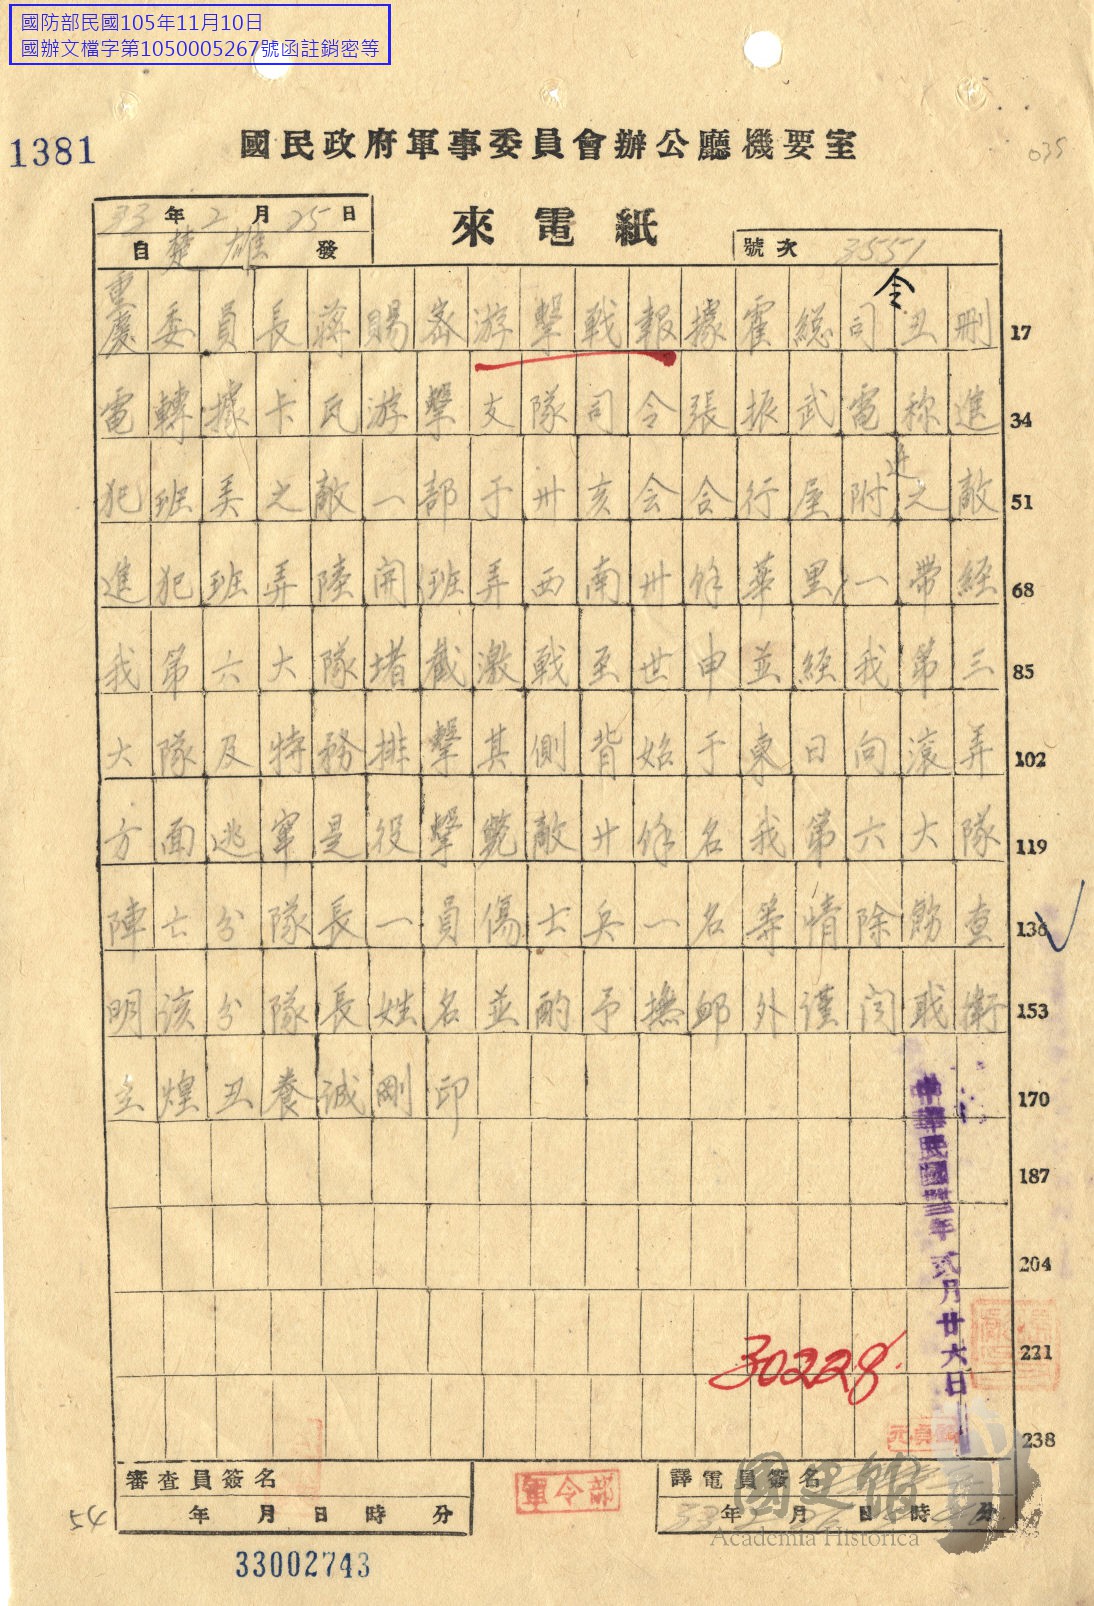 國防部民國105年11月10日
國辦文檔字第1050005267號函註銷密等
1381
國民政府軍事委員會辦公廳機要室
035
33年2月25日
來電紙
自楚雄發
號次 3551
重慶委員長蔣賜密游擊戰報據霍總司令丑刪 17
電轉據卡瓦游擊支隊司令張振武電称進 34
犯班弄之敵一部于卅亥会合行屋附近之敵 51
進犯班弄陸開(班弄西南卅餘華里)一帶経 68
我第六大隊堵截激戰至世申並経我第三 85
大隊及特務排擊其側背始于東日向滚弄 102
方面逃竄是役擊斃敵廿餘名我第六大隊 119
陣亡分隊長一員傷士兵一名等情除飭查 136
明該分隊長姓名並酌予撫卹外謹闻戢衛 153
立煌丑養誠剛印 170
187
204
221
238
中華民國卅三年弍月廿六日
30228
審查員簽名
年 月 日 時 分
軍令部
譯電員簽名
33年2月26日 時 分
54
33002743
國史館
Academia Historica